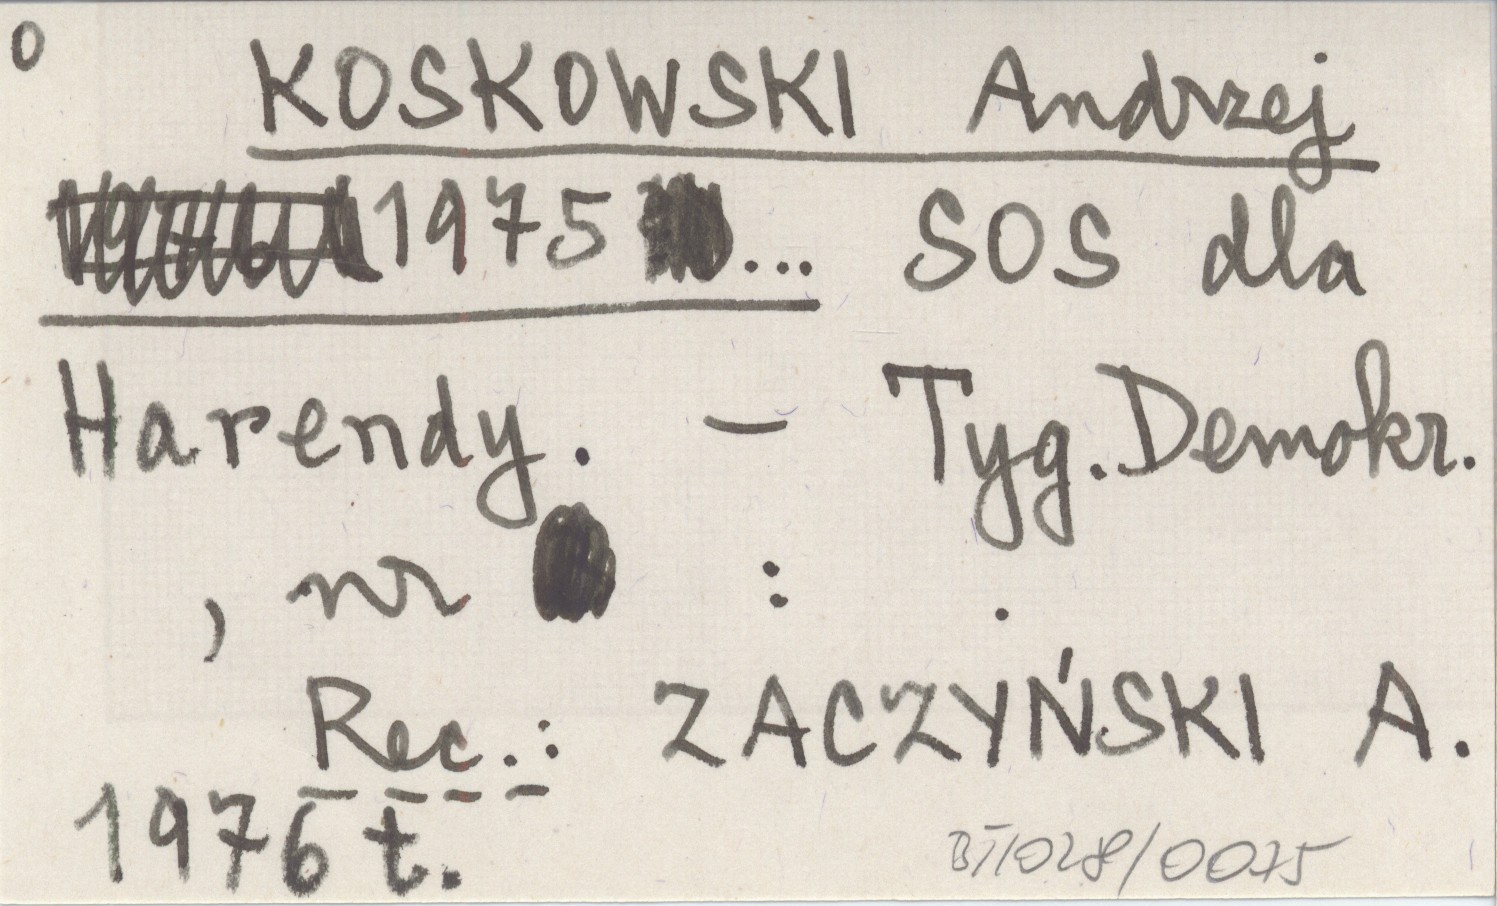 0
KOSKOWSKI Andrzej
1975 ... SOS dla
Harendy. – Tyg. Demokr.
, nr : .
Rec.: ZACZYŃSKI A.
1976 t.
/0075